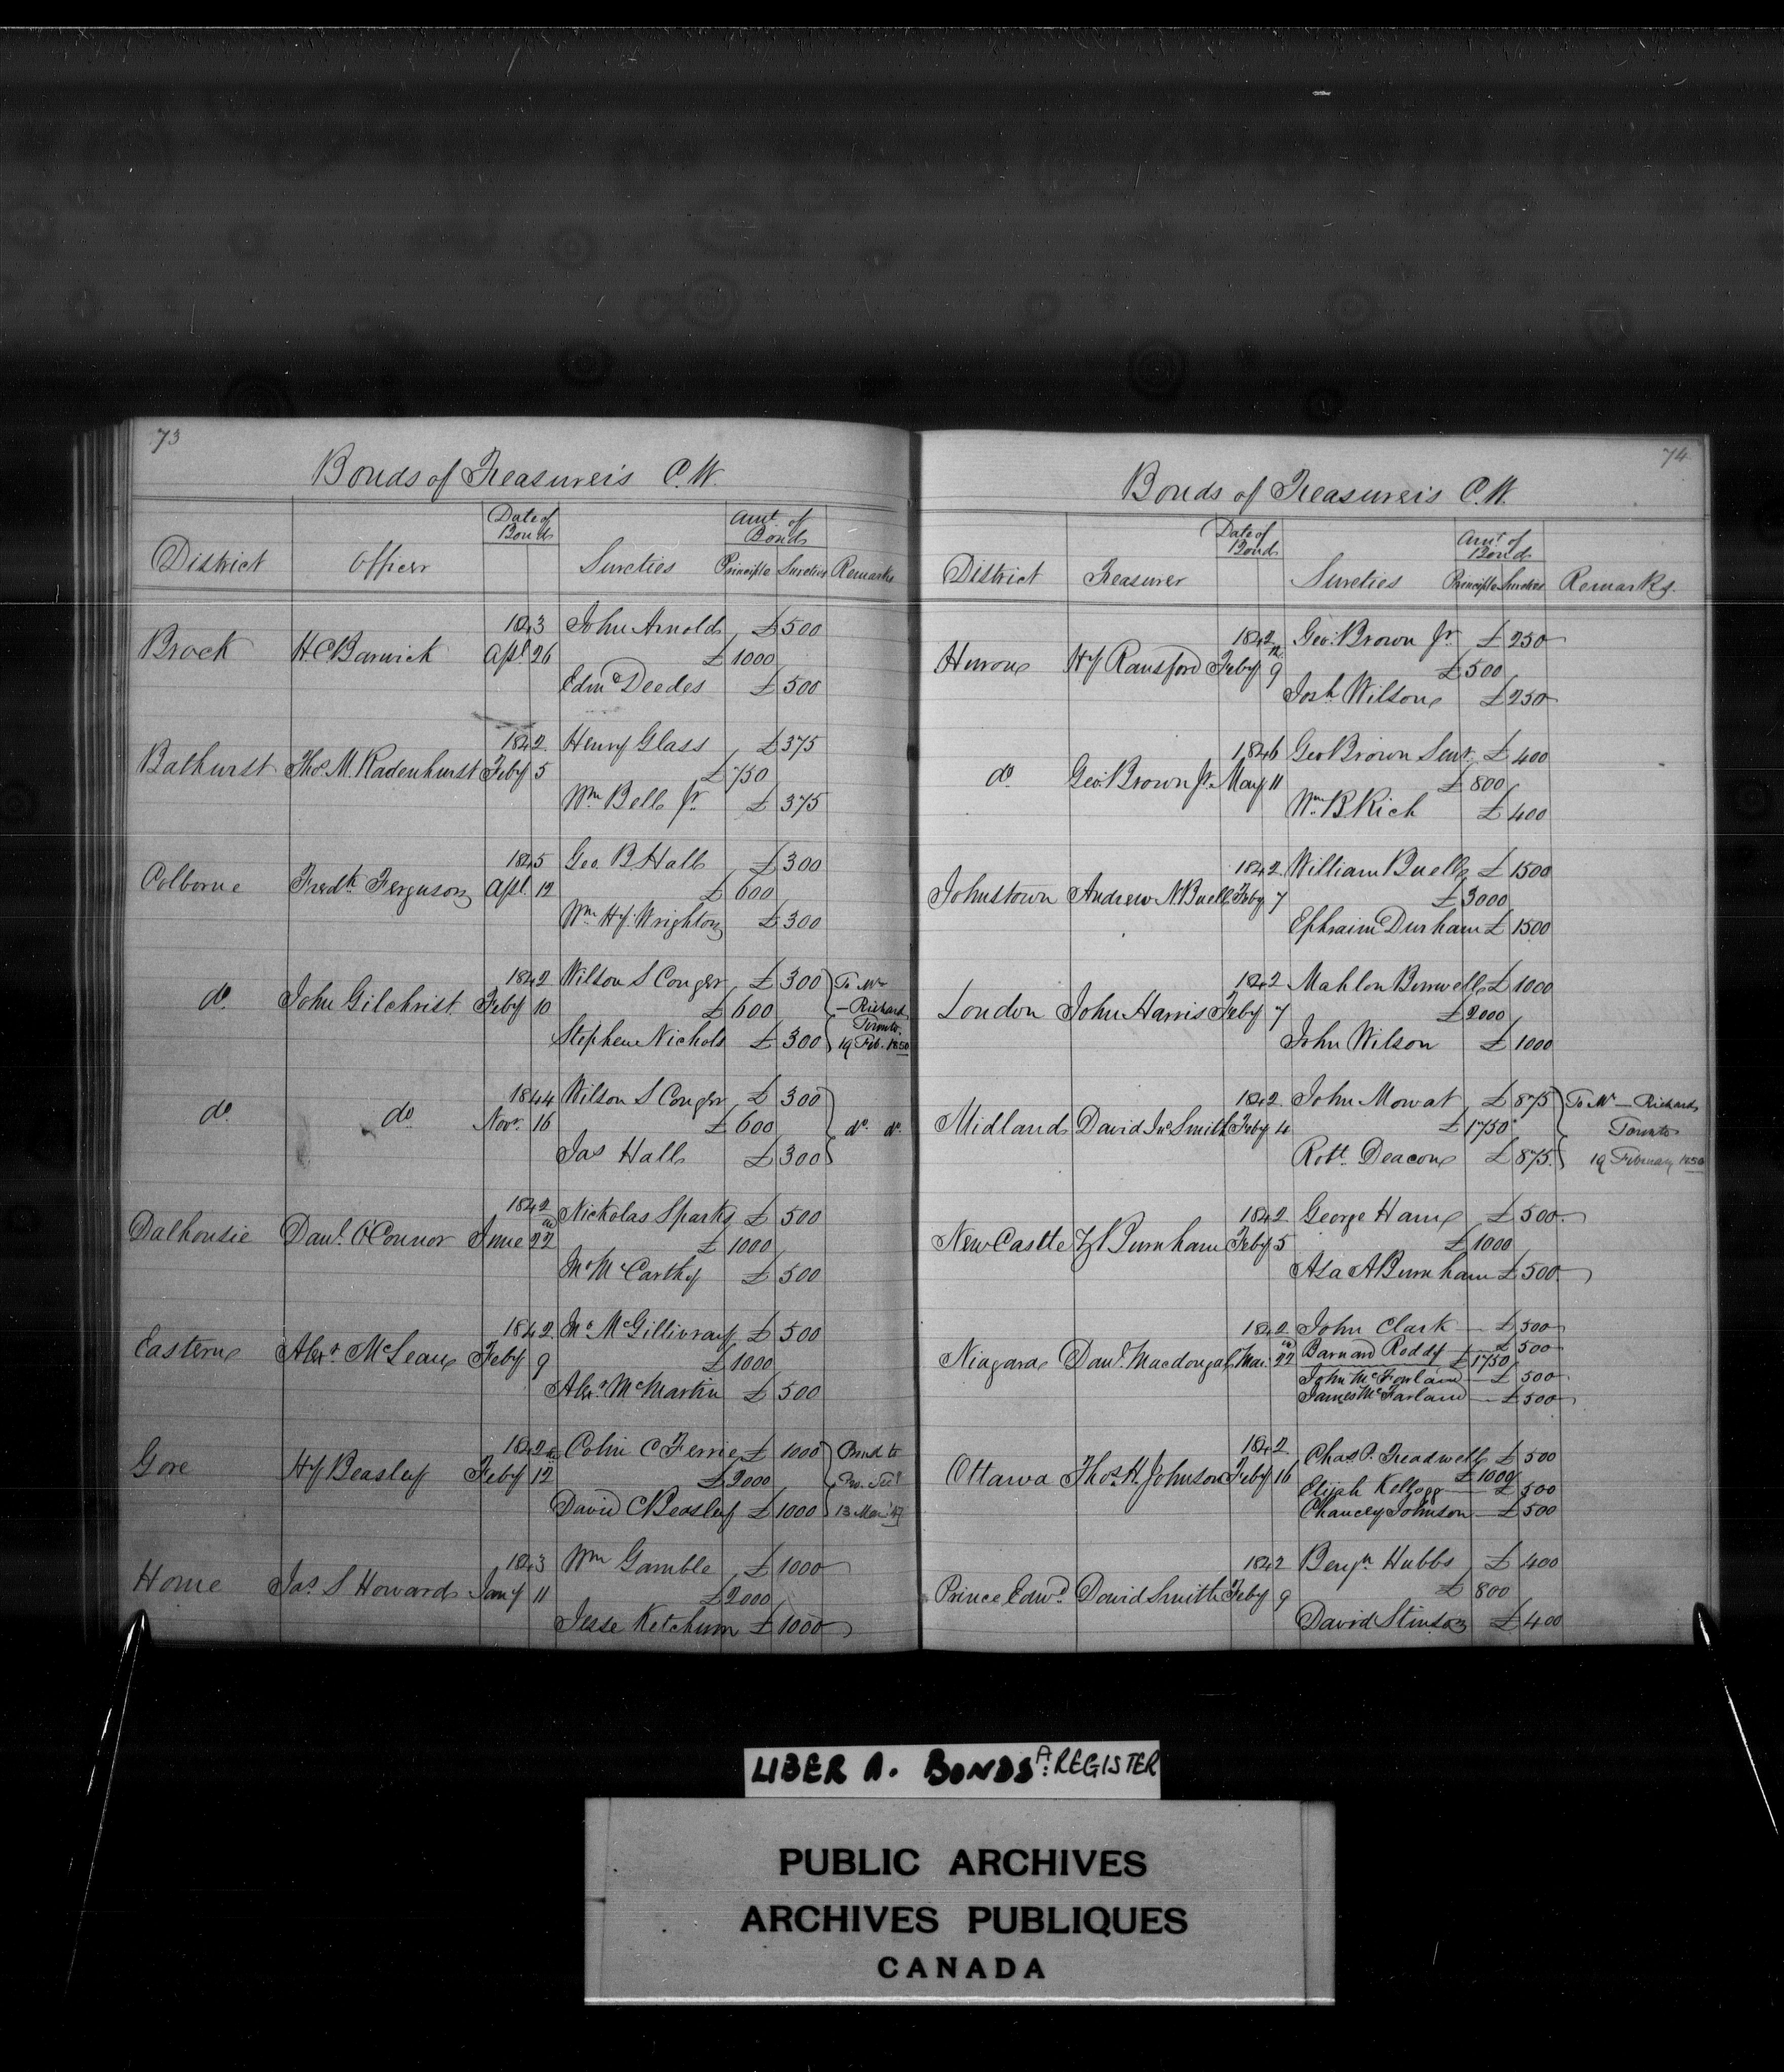 73
Bonds of Treasurers C.W.
District Officer Date of Bond Sureties Amt. of Bond Principle Sureties Remarks
1843 John Arnold £500
Brock H C Barwick Apl. 26 £1000
Edmd Deedes £500
1842 Henry Glass £375
Bathurst Thos. M. Radenhurst Feby 5 £750
Wm Bell Jr. £375
1845 Geo. B Hall £300
Colborne Fredk Ferguson Apl. 12 £600
Wm Hy. Wrighton £300
1842 Wilson S Conger £300 To Mr
do. John Gilchrist Feby 10 £600 — Richards Toronto.
Stephen Nichols £300 19 Feb. 1850
1844 Wilson S Conger £300
do. do. Novr. 16 £600 do. do.
Jas Hall £300
1842 Nickolas Sparks £500
Dalhousie Danl. O'Connor June 22 £1000
McCarthy £500
1842 McGillivray £500
Eastern Alexr McLean Feby 9 £1000
Alexr McMartin £500
1842 Colin C Ferrie £1000 Bond to
Gore Hy Beasley Feby 12 £2000 Pro. Secy
David C Beasley £1000 13 Mar '47
1843 Wm Gamble £1000
Home Jas. S Howard Jany 11 £2000
Jesse Ketchum £1000
74
Bonds of Treasurers C.W.
District Treasurer Date of Bond Sureties Amt of Bond Principle Sureties Remarks.
1842 Geo. Brown Jr. £250
Huron Hy Ransford Feby 9 £500
Josh. Wilson £250
1846 Geo Brown Senr. £400
do. Geo. Brown Jr. May 11 £800
Wm B Rich £400
1842 William Buell £1500
Johnstown Andrew N Buell Feby 7 £3000
Ephraim Dunham £1500
1842 Mahlon Burwell £1000
London John Harris Feby 7 £2000
John Wilson £1000
1842 John Mowat £875 To Mr — Richards
Midland David Jno Smith Feby 4 £1750 Toronto
Robt. Deacon £875 19 February 1850
1842 George Ham £500
New Castle Z Burnham Feby 5 £1000
Asa A Burnham £500
1842 John Clark £500
Barnard Roddy £500
Niagara Danl. Macdougal Mar. 22 £1750
John McFarland £500
James McFarland £500
1842 Chas. P. Treadwell £500
Ottawa Thos. H. Johnson Feby 16 £1000
Elijah Kellogg £500
Chancey Johnson £500
1842 Benjn. Hubbs £400
Prince Edwd. David Smith Feby 9 £800
David Stinson £400
LIBER A. BONDS A: REGISTER
PUBLIC ARCHIVES
ARCHIVES PUBLIQUES
CANADA